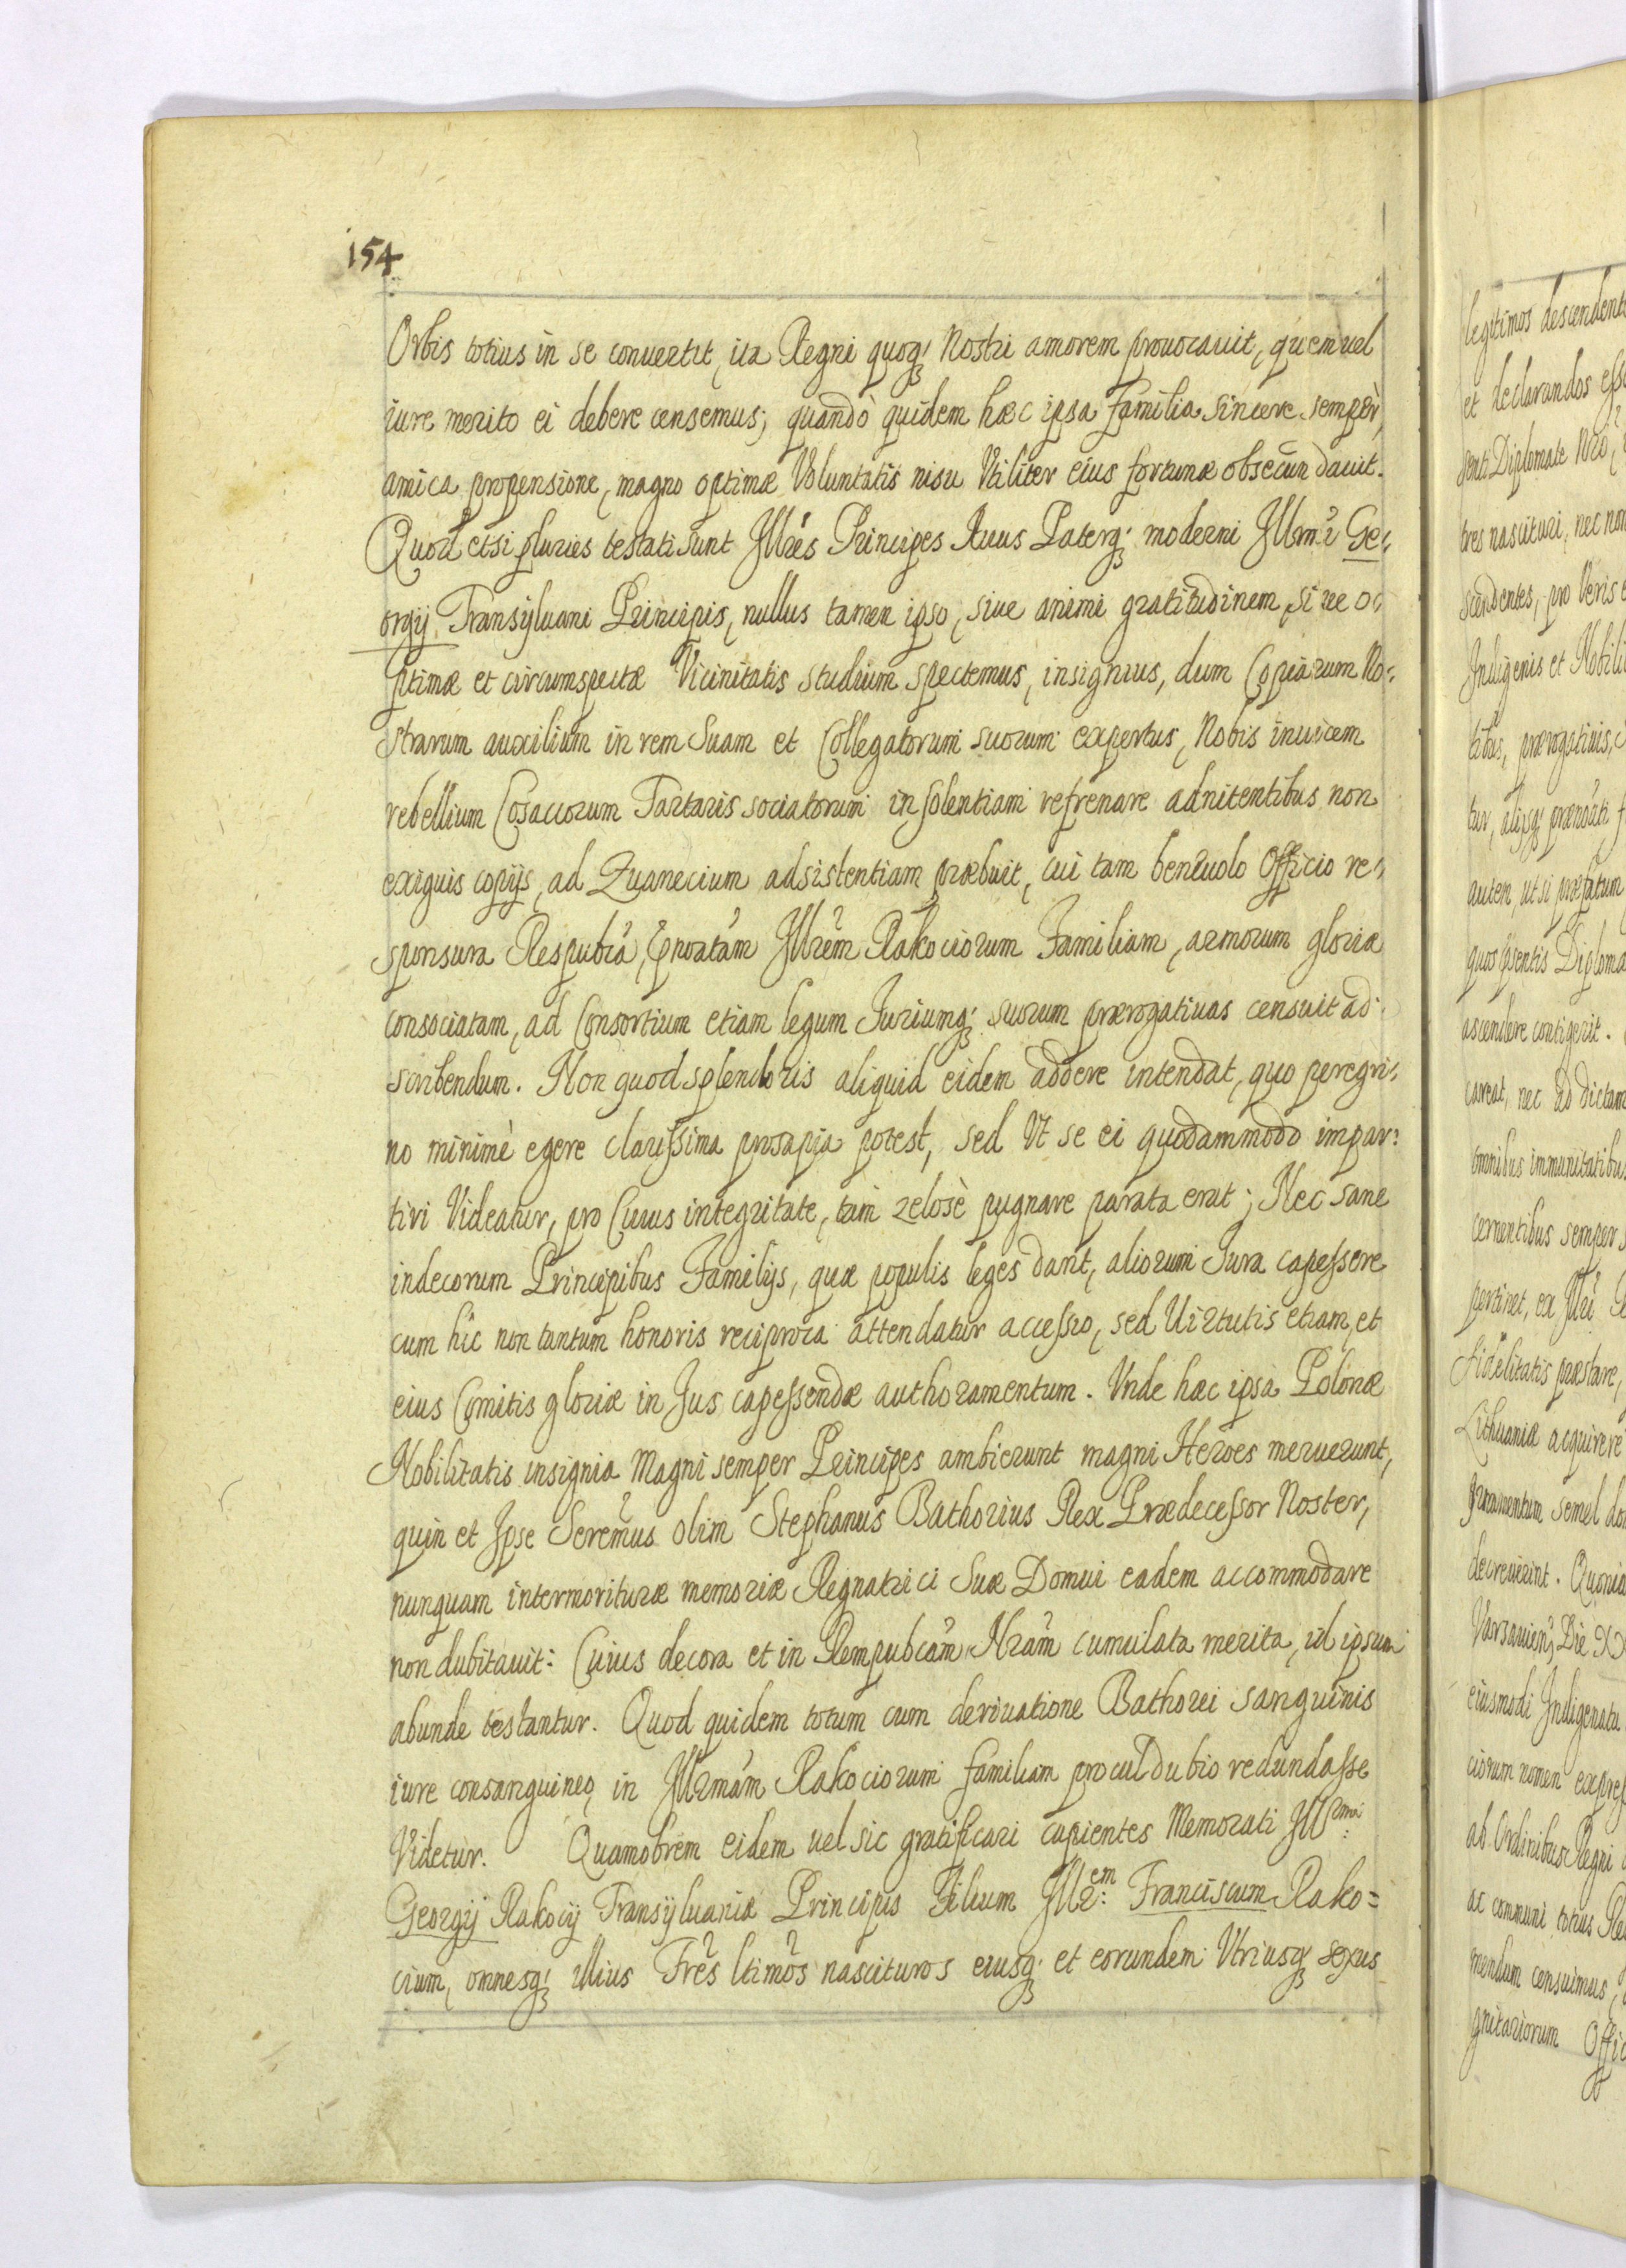 154
Orbis totius in se conuertit, ita Regni quoq₃ Nostri amorem prouocauit, quem uel
iure merito ei debere censemus; quandò quidem hæc ipsa familia sincere semper,
amica propensione, magno optimæ Voluntatis nisu Vtiliter eius fortunæ obsecundauit.
Quod etsi pluries testati sunt Jllrēs Principes Auus Paterq₃ moderni Jllmī Ge-
orgij Transyluani Principis, nullus tamen ipso, siue animi gratitudinem, siue o-
ptimæ et circumspectæ Vicinitatis studium spectemus, insignius, dum Copiarum No-
strarum auxilium in rem Suam et Collegatorum suorum expertus, Nobis inuicem
rebellium Cosaccorum Tartaris sociatorum insolentiam refrenare adnitentibus non
exiguis copijs, ad Zuanecium adsistentiam præbuit, cui tam beneuolo Officio re-
sponsura Respubcā, Jllrem Rakociorum Familiam, armorum gloriæ
consociatam, ad Consortium etiam legum Juriumq₃ suorum prærogatiuas censuit ad-
scribendum. Non quod splendoris aliquid eidem addere intendat, quo peregri-
no minimè egere clarissima prosapia potest, sed Vt se ei quodammodo impar-
tiri Videatur, pro Cuius integritate, tam zelosè pugnare parata erat; Nec sane
indecorum Principibus Familijs, quæ populis leges dant, aliorum Jura capessere
cum hic non tantum honoris reciproca attendatur accessio, sed Uirtutis etiam, et
eius Comitis gloriæ in Jus capessendæ authoramentum. Vnde hæc ipsa Polonæ
Nobilitatis insignia Magni semper Principes ambierunt magni Heroes meruerunt,
quin et Jpse Seremūs olim Stephanus Bathorius Rex Prædecessor Noster,
nunquam intermorituræ memoriæ Regnatrici Suæ Domui eadem accommodare
non dubitauit: Cuius decora et in Rempubcām Nrām cumulata merita, id ipsum
abunde testantur. Quod quidem totum cum deriuatione Bathorei sanguinis
iure consanguineo, in Jllrmām Rakociorum familiam procul dubio redundasse
Videtur. Quamobrem eidem uel sic gratificari cupientes Memorati Jllrmi
Georgij Rakocij Transyluaniæ Principis Filium Jllrem Franciscum Rako=
cium, omnesq₃ illius Frēs ltimōs nascituros eiusq₃ et eorundem Vtriusq₃ sexus
legitimos descendent
et declarandos esse
senti Diplomate Nrō,
tres nascituri, nec non
scendentes, pro Veris e
Indigenis et Nobili
tibus, prærogatiuis,
tur, alijsq₃ prænōati f
autem, ut si præfatum
quos psentis Diploma
ascendere contigerit.
careat, nec ad dictam
omnibus immunitatibus
cernentibus semper s
pertinet, ex Jllri G
fidelitatis præstare,
Lithuaniæ acquirere
Juramentum semel do
decreuerint. Quonia
Varsauien₃ Die XX
eiusmodi Indigenatu
ciorum nomen expres
ab Ordinibus Regni
ac communi totius Re
mendum censuimus,
gnitariorum Offic